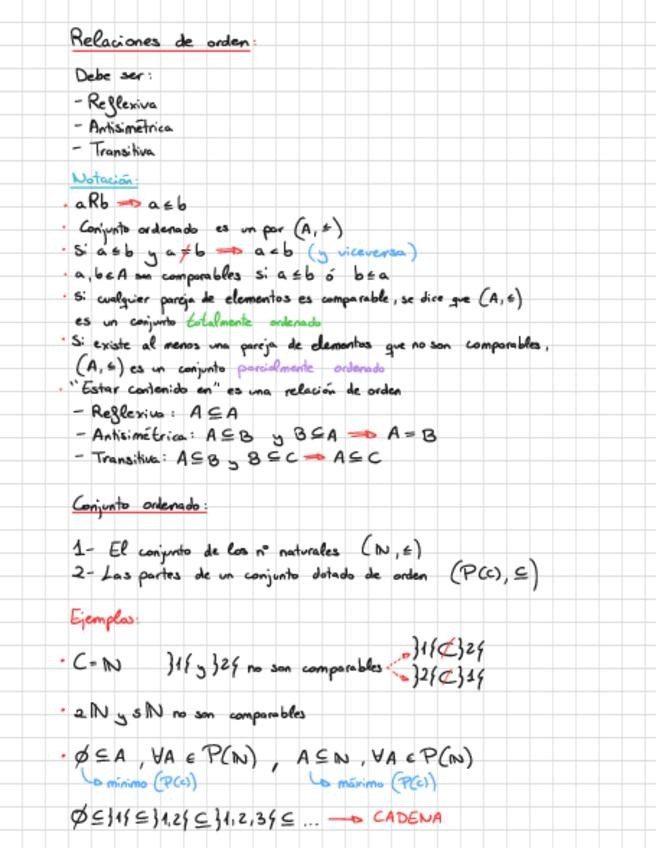 Relaciones de orden:
Debe ser:
- Reflexiva
- Antisimétrica
- Transitiva
Notación:
· aRb ⇒ a≤b
· Conjunto ordenado es un par (A, ≤)
· Si a≤b y a≠b ⇒ a<b (y viceversa)
· a, b∈A son comparables si a≤b ó b≤a
· Si cualquier pareja de elementos es comparable, se dice que (A, ≤)
es un conjunto totalmente ordenado
· Si existe al menos una pareja de elementos que no son comparables,
(A, ≤) es un conjunto parcialmente ordenado
· "Estar contenido en" es una relación de orden
- Reflexiva: A⊆A
- Antisimétrica: A⊆B y B⊆A ⇒ A=B
- Transitiva: A⊆B y B⊆C ⇒ A⊆C
Conjunto ordenado:
1- El conjunto de los nº naturales (ℕ, ≤)
2- Las partes de un conjunto dotado de orden (P(C), ⊆)
Ejemplos:
· C=ℕ }1{ y }2{ no son comparables
}1{⊄}2{
}2{⊄}1{
· 2ℕ y 5ℕ no son comparables
· ∅⊆A, ∀A∈P(ℕ), A⊆ℕ, ∀A∈P(ℕ)
↳ mínimo (P(C)) ↳ máximo (P(C))
∅⊆}1{⊆}1,2{⊆}1,2,3{⊆... → CADENA